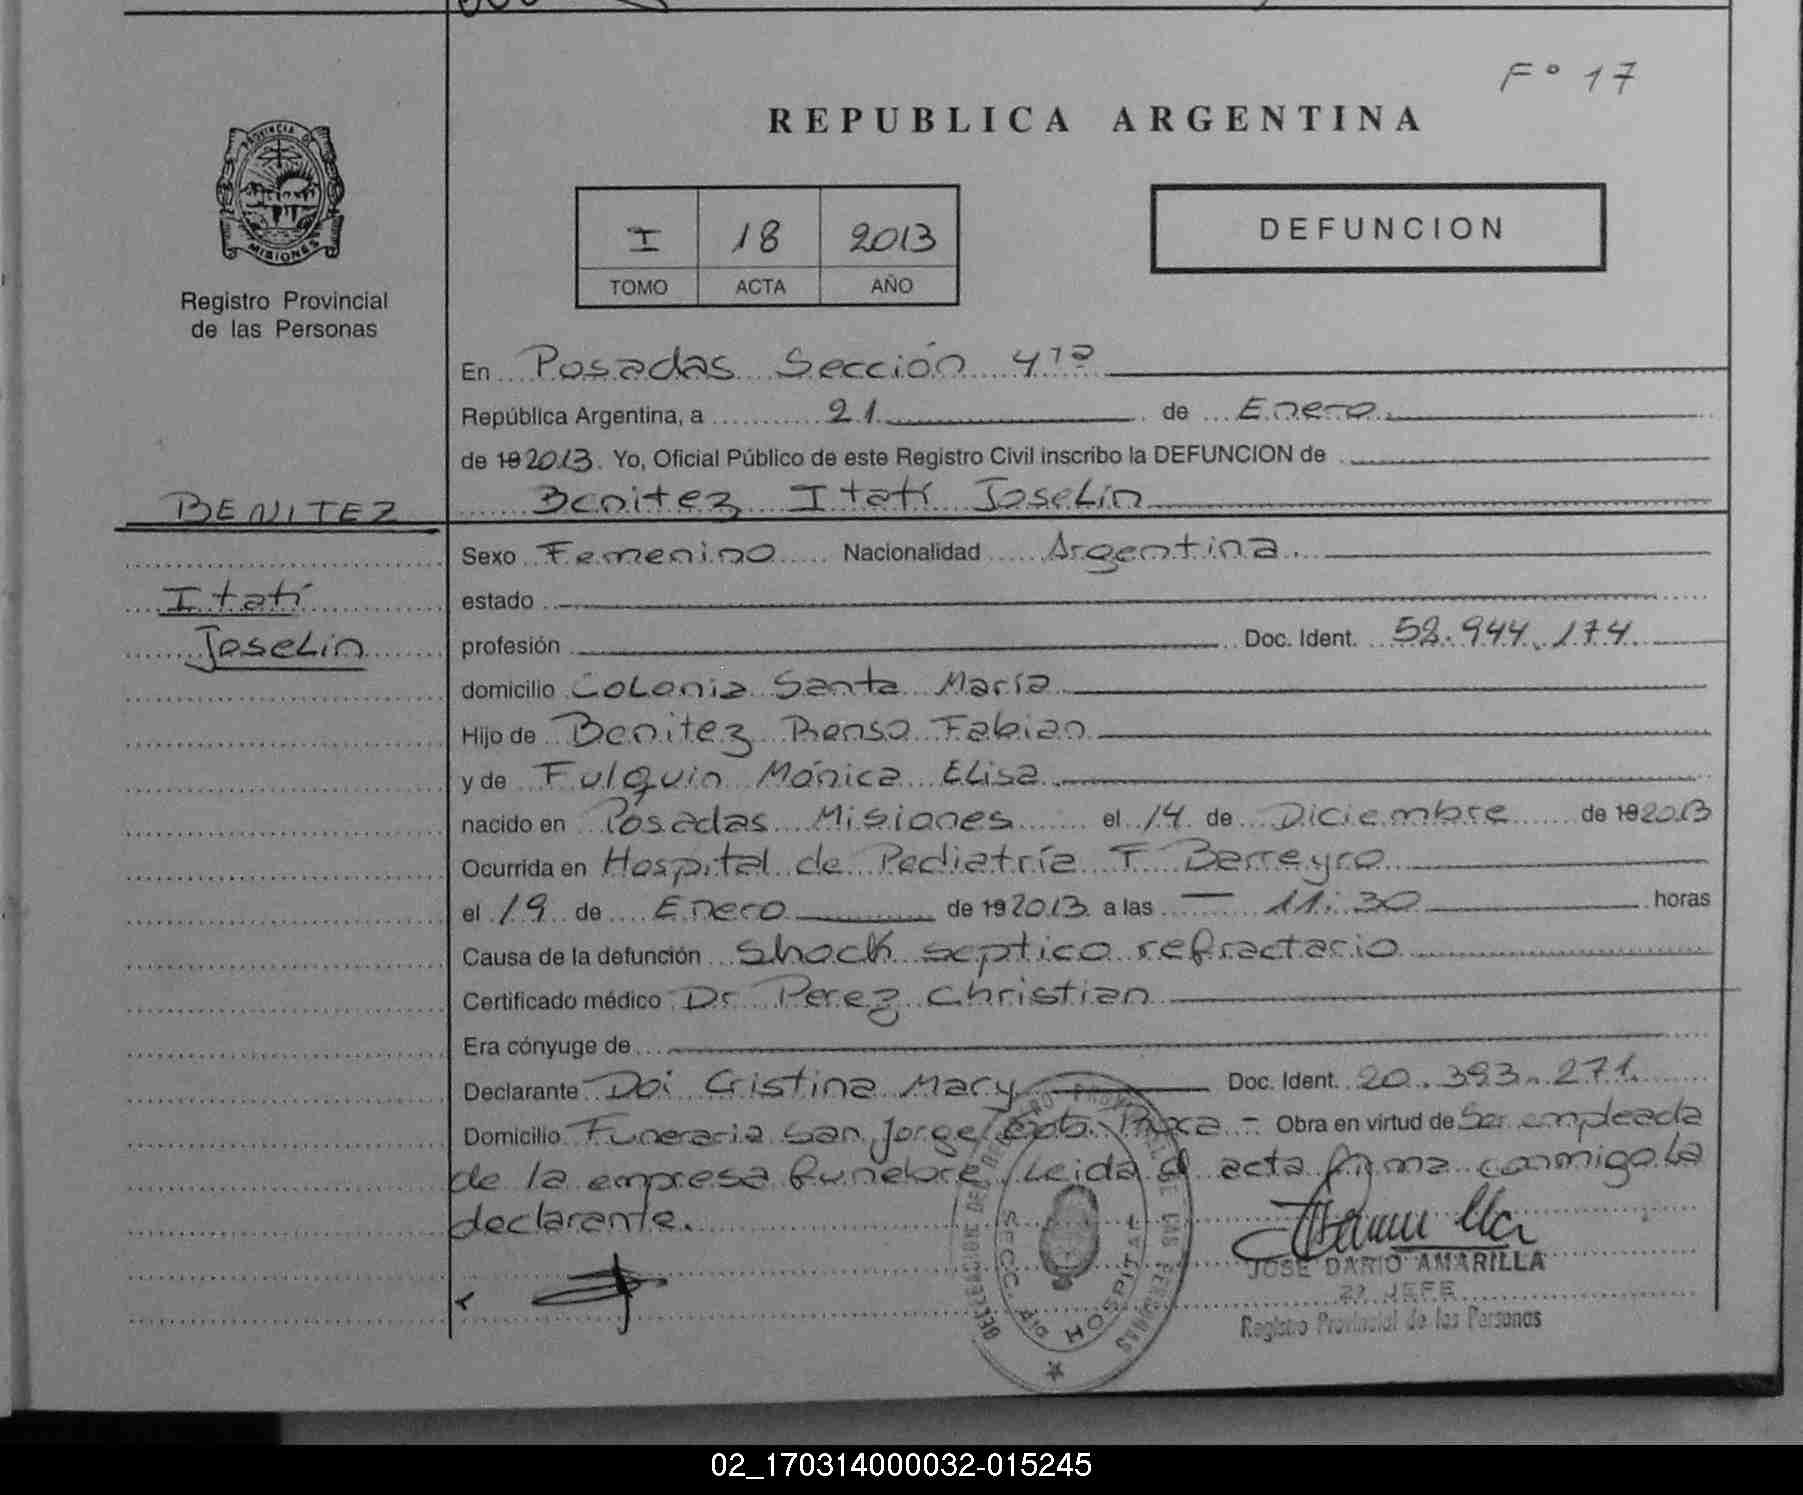 Fº 17
REPUBLICA ARGENTINA
PROVINCIA DE MISIONES
Registro Provincial
de las Personas
I 18 2013
TOMO ACTA AÑO
DEFUNCION
En Posadas Sección 4ta
República Argentina, a 21 de Enero
de 19 2013. Yo, Oficial Público de este Registro Civil inscribo la DEFUNCION de
BENITEZ
Itatí
Joselin
Benitez Itatí Joselin
Sexo Femenino Nacionalidad Argentina.
estado
profesión Doc. Ident. 52.944.174
domicilio Colonia Santa María
Hijo de Benitez Renso Fabian
y de Fulquin Mónica Elisa
nacido en Posadas Misiones el 14 de Diciembre de 19 2013
Ocurrida en Hospital de Pediatría F. Barreyro
el 19 de Enero de 19 2013 a las 11:30 horas
Causa de la defunción Shock septico refractario
Certificado médico Dr Perez Christian
Era cónyuge de
Declarante Doi Cristina Mary Doc. Ident. 20.393.271.
Domicilio Funeraria San Jorge Obra en virtud de Ser empleada
de la empresa funebre Leida el acta firma conmigo la
declarante.
DELEGACION DEL REGISTRO PROVINCIAL DE LAS PERSONAS
SECC. 4ta HOSPITAL
JOSE DARIO AMARILLA
2º JEFE
Registro Provincial de las Personas
02_170314000032-015245